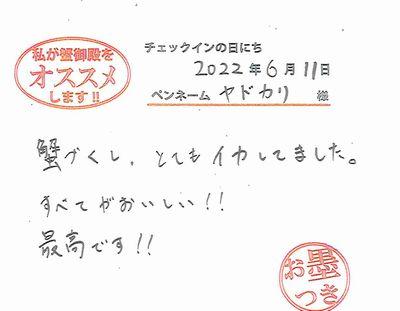 私が蟹御殿を
オススメ
します!!
チェックインの日にち
2022年6月11日
ペンネーム ヤドカリ 様
蟹づくし、とてもイカしてました。
すべてがおいしい!!
最高です!!
お墨
つき